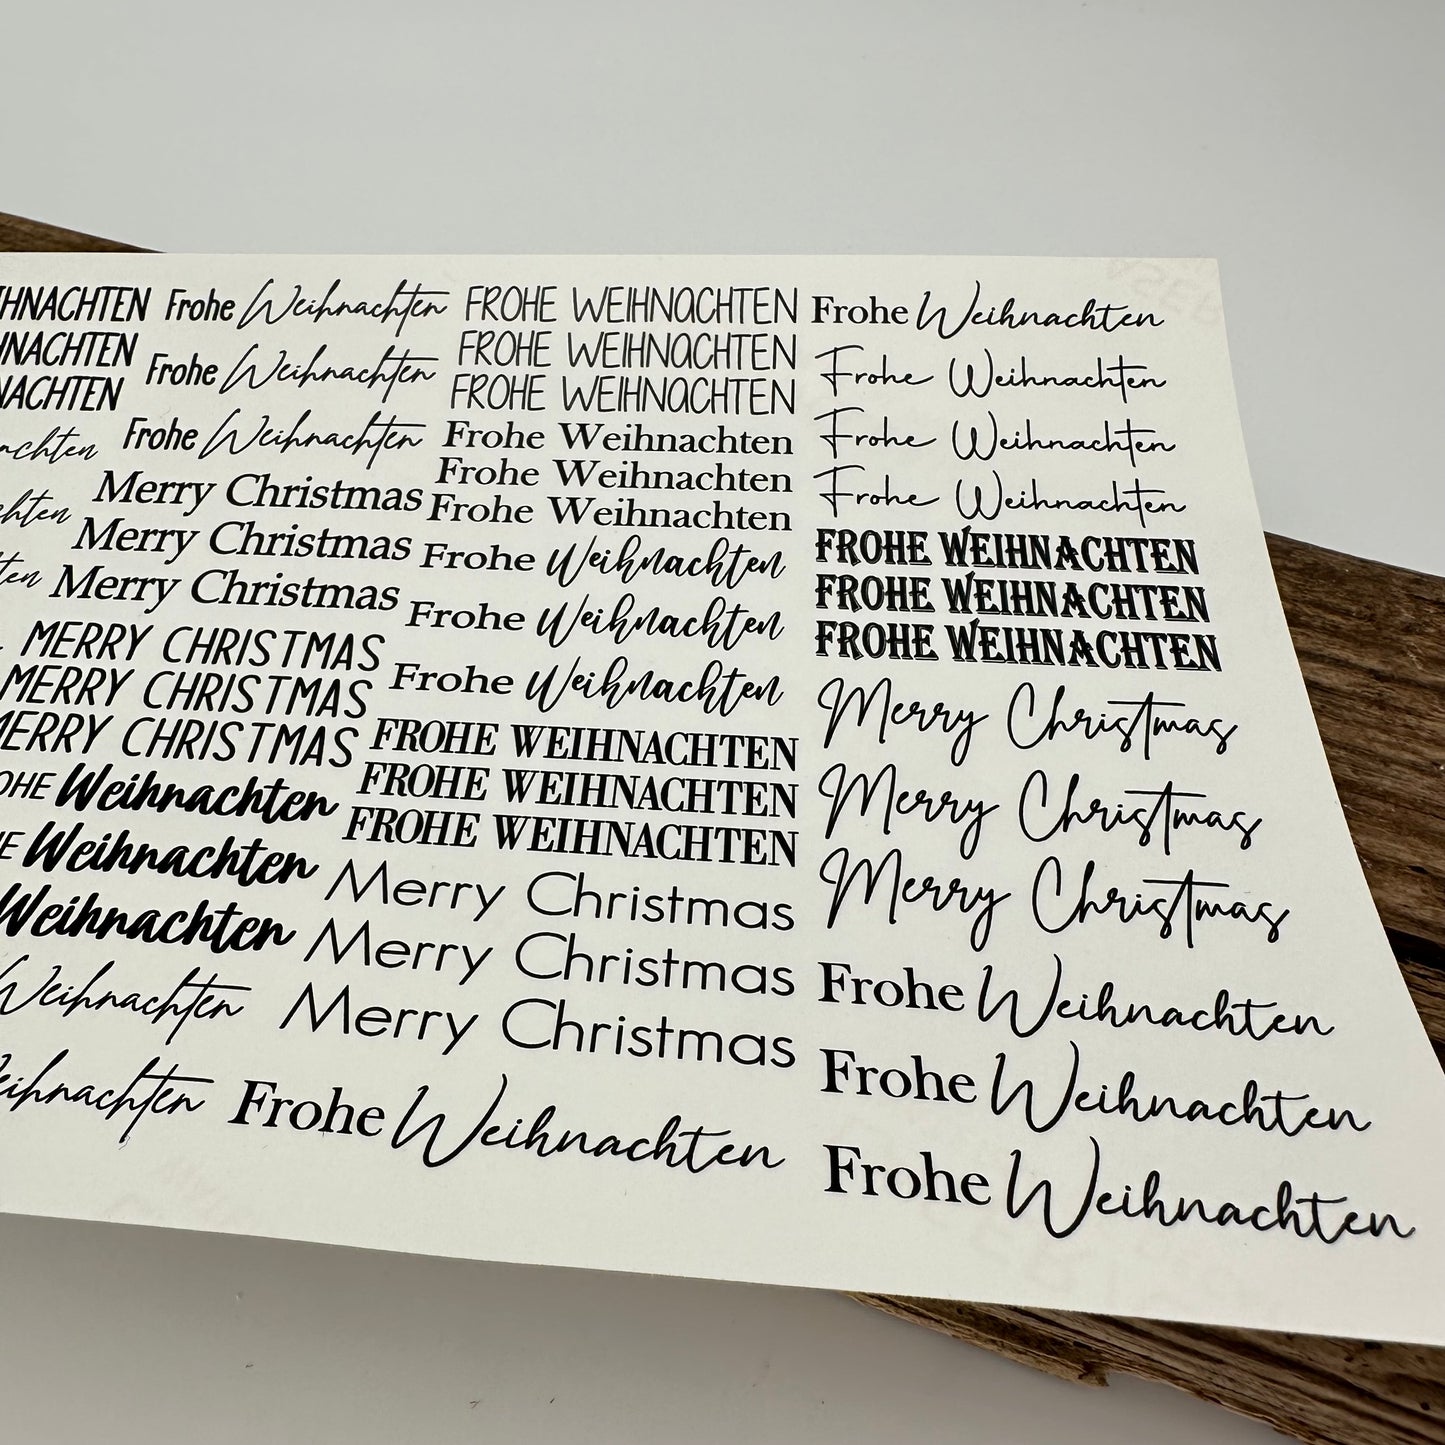 HNACHTEN
NACHTEN
NACHTEN
achten
chten
ten
Frohe Weihnachten
Frohe Weihnachten
Frohe Weihnachten
Merry Christmas
Merry Christmas
Merry Christmas
MERRY CHRISTMAS
MERRY CHRISTMAS
MERRY CHRISTMAS
OHE Weihnachten
E Weihnachten
Weihnachten
Weihnachten
eihnachten
FROHE WEIHNACHTEN
FROHE WEIHNACHTEN
FROHE WEIHNACHTEN
Frohe Weihnachten
Frohe Weihnachten
Frohe Weihnachten
Frohe Weihnachten
Frohe Weihnachten
Frohe Weihnachten
FROHE WEIHNACHTEN
FROHE WEIHNACHTEN
FROHE WEIHNACHTEN
Merry Christmas
Merry Christmas
Merry Christmas
Frohe Weihnachten
Frohe Weihnachten
Frohe Weihnachten
Frohe Weihnachten
Frohe Weihnachten
FROHE WEIHNACHTEN
FROHE WEIHNACHTEN
FROHE WEIHNACHTEN
Merry Christmas
Merry Christmas
Merry Christmas
Frohe Weihnachten
Frohe Weihnachten
Frohe Weihnachten